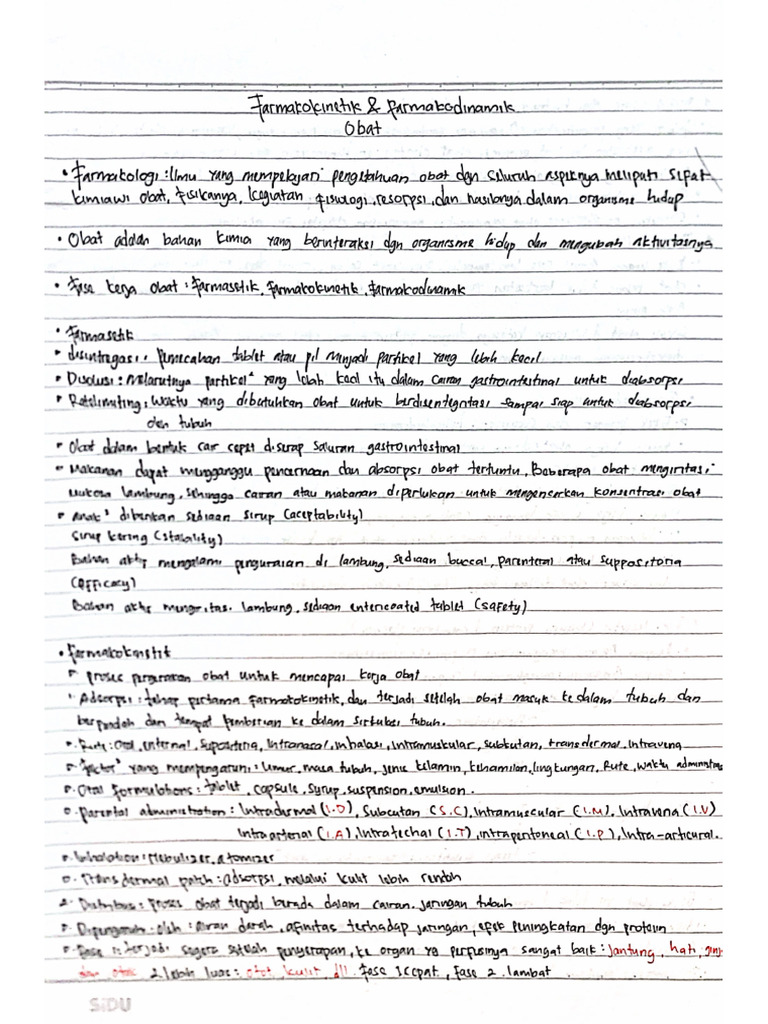 Farmakokinetik & Farmakodinamik
Obat
• Farmakologi : Ilmu yang mempelajari pengetahuan obat dgn seluruh aspeknya meliputi sifat
kimiawi obat, fisikanya, kegiatan fisiologi, resorpsi, dan nasibnya dalam organisme hidup
• Obat adalah bahan kimia yang berinteraksi dgn organisme hidup dan mengubah aktivitasnya
• Fase kerja obat : Farmasetik, Farmakokinetik, Farmakodinamik
• Farmasetik
• disintegrasi : pemecahan tablet atau pil menjadi partikel yang lebih kecil
• Disolusi : Melarutnya partikel² yang lebih kecil itu dalam cairan gastrointestinal untuk diabsorpsi
• Ratelimiting : waktu yang dibutuhkan obat untuk berdisentegrasi sampai siap untuk diabsorpsi
oleh tubuh
• Obat dalam bentuk cair cepat diserap saluran gastrointestinal
• Makanan dapat mengganggu pencernaan dan absorpsi obat tertentu, Beberapa obat mengiritasi
mukosa lambung, sehingga cairan atau makanan diperlukan untuk mengencerkan konsentrasi obat
• Anak² diberikan sediaan sirup (acceptability)
Sirup kering (stability)
Bahan aktif mengalami penguraian di lambung, sediaan buccal, parenteral atau suppositoria
(efficacy)
Bahan aktif mengiritasi lambung, sediaan entericoated tablet (safety)
• Farmakokinetik
• proses pergerakan obat untuk mencapai kerja obat
1. Adsorpsi : tahap pertama farmakokinetik, dan terjadi setelah obat masuk ke dalam tubuh dan
berpindah dari tempat pemberian ke dalam sirkulasi tubuh.
• Rute : Oral, enternal, Supositeria, Intranasal, inhalasi, Intramuskular, subkutan, transdermal, Intravena
• Factor² yang mempengaruhi : Umur, masa tubuh, jenis kelamin, kehamilan, lingkungan, Rute, waktu administras
• Oral formulations : tablet, capsule, syrup, suspension, emulsion.
• Parental administration : Intradermal (I.D), Subcutan (S.C), Intramuscular (I.M), Intravena (I.V)
Intraarterial (I.A), Intratechal (I.T), intraperitoneal (I.P), Intra-articural.
• Inhalation : Nebulizer, atomizer
• Transdermal patch : adsorpsi, melalui kulit lebih rendah
2. Distribusi : proses obat terjadi berada dalam cairan, jaringan tubuh
• Dipengaruhi oleh : Aliran darah, afinitas terhadap jaringan, efek peningkatan dgn protein
• Fase 1 : terjadi segera setelah penyerapan, ke organ yg perfusinya sangat baik : jantung, hati, ginj
dan otak 2. lebih luas : otot kulit dll. Fase 1 cepat, Fase 2 lambat
SiDU